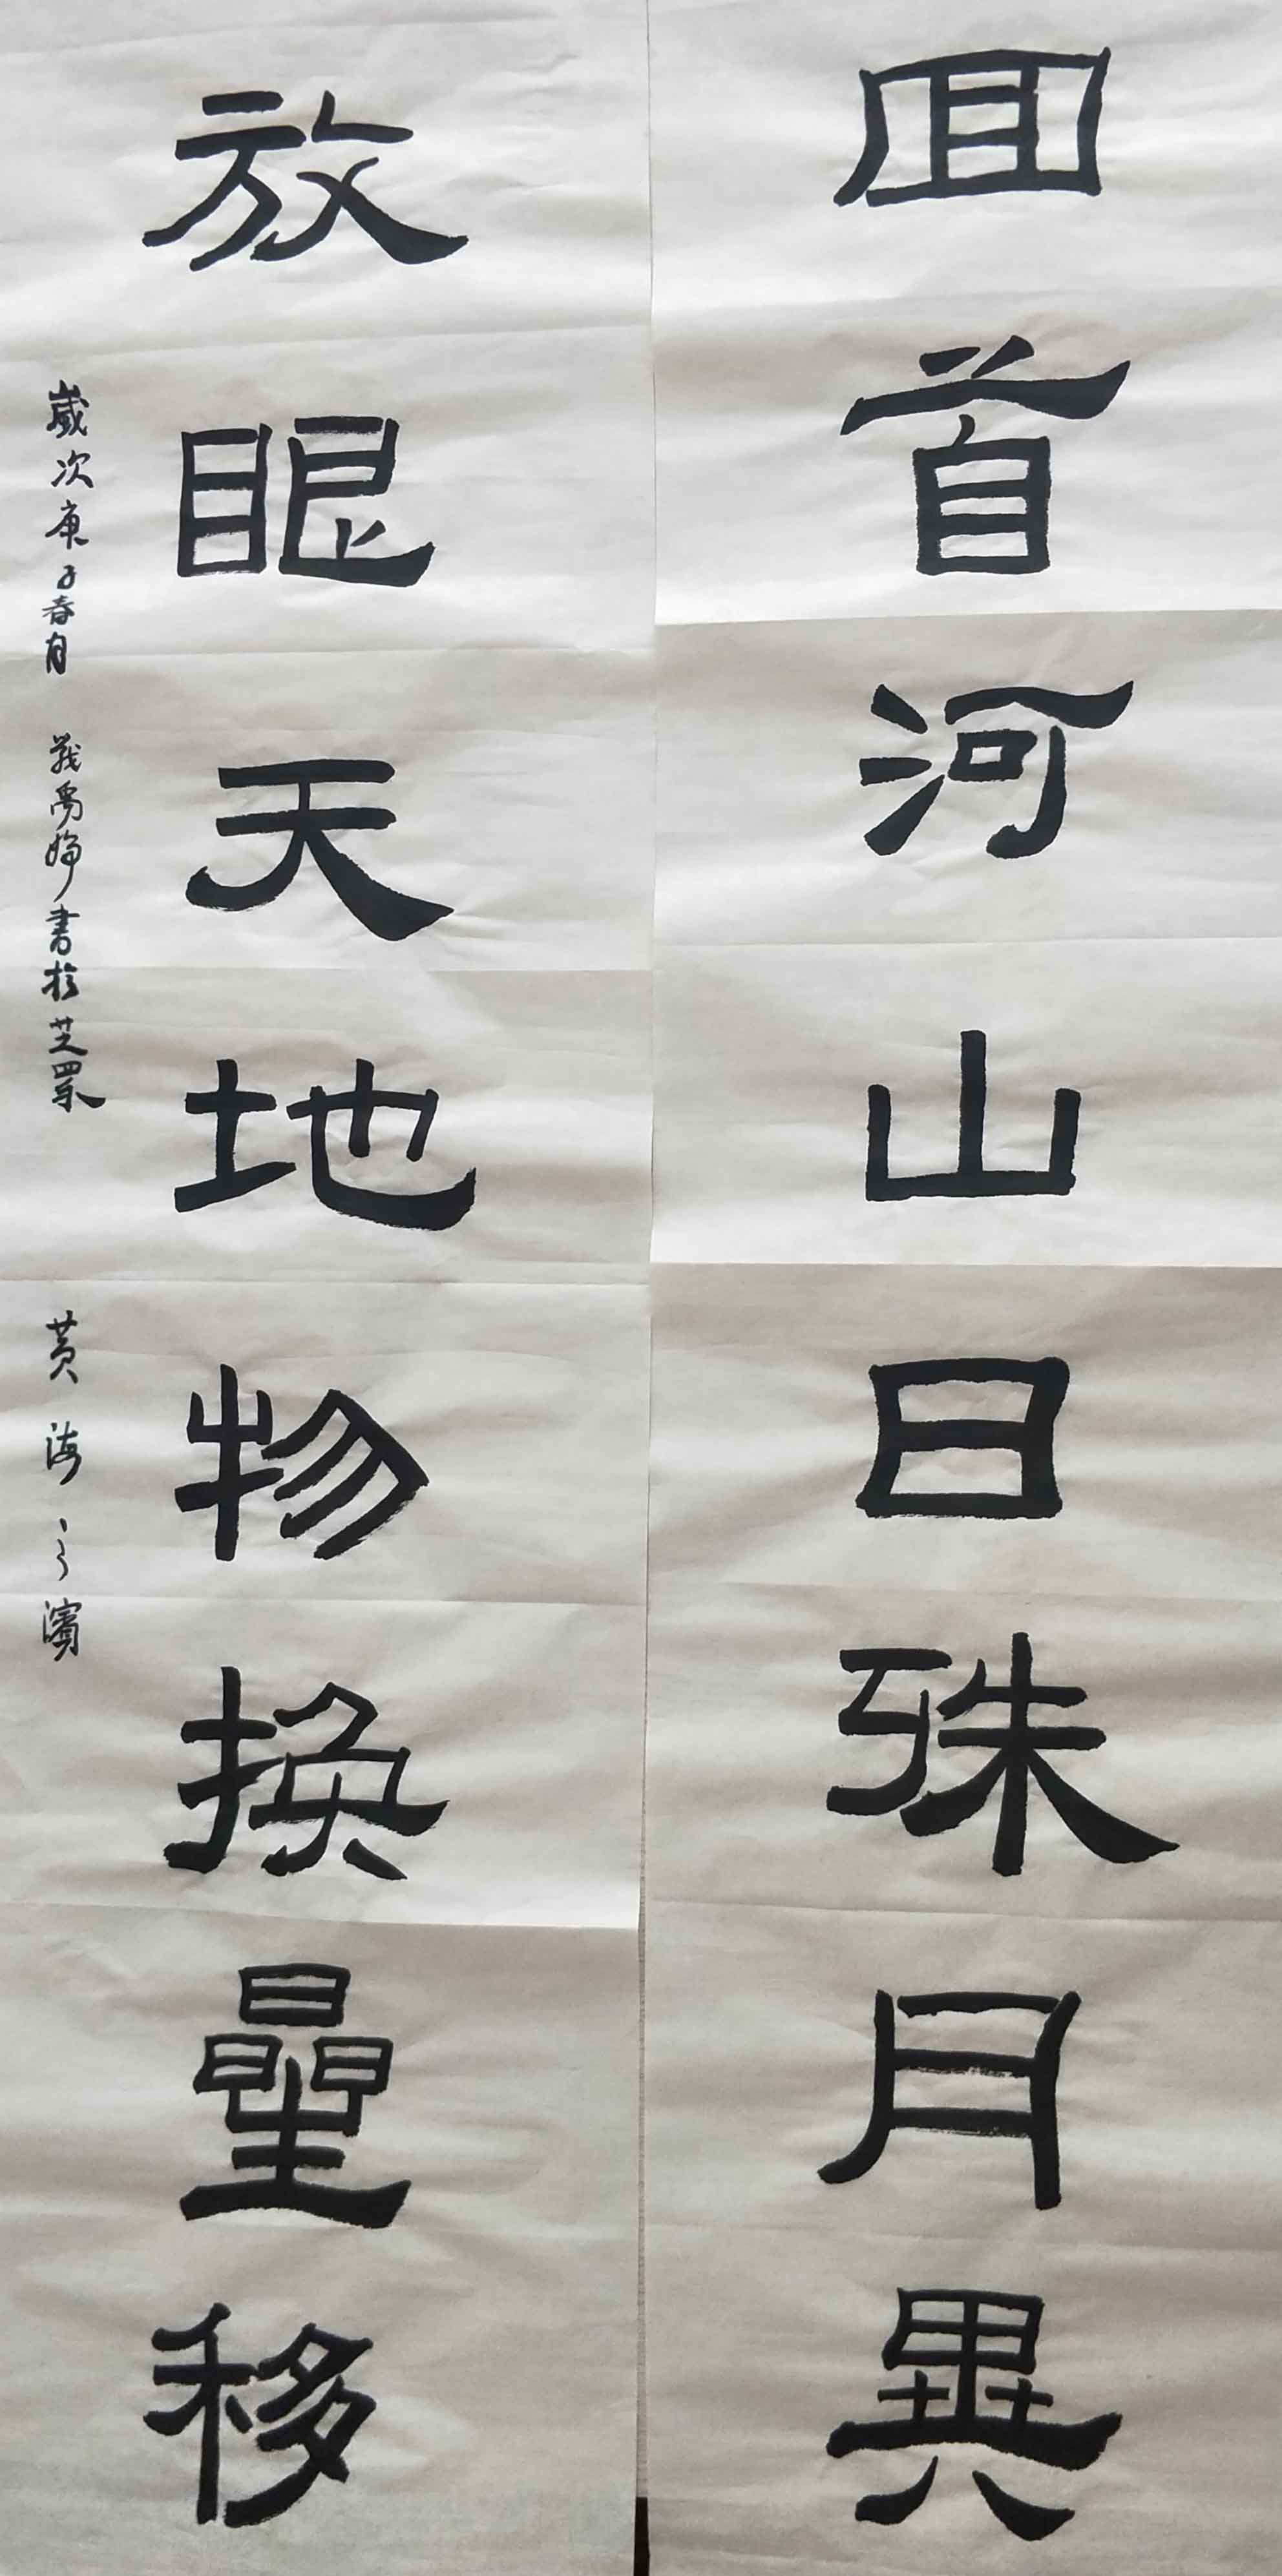 回首河山日殊月異
放眼天地物換星移
歲次庚子春月 戰禹婷書於芝罘 黄海之濱